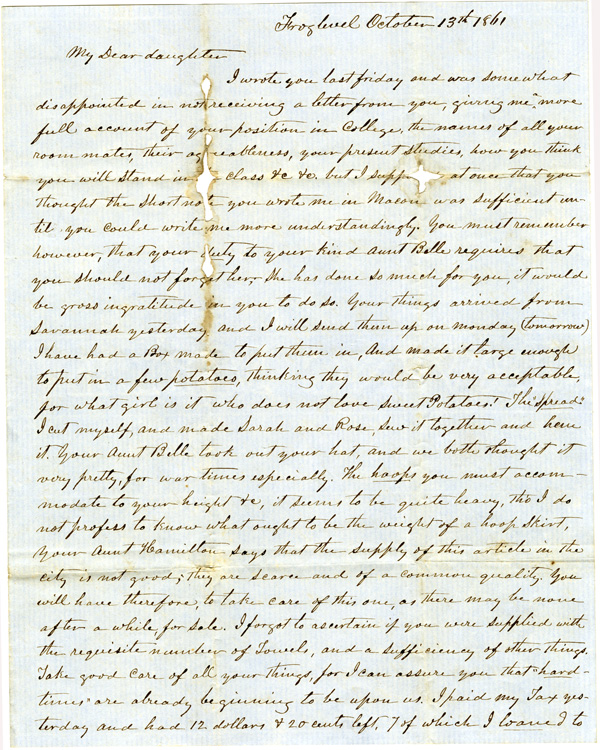 Froglevel October 13th 1861
My Dear daughter
I wrote you last friday and was somewhat
disappointed in not receiving a letter from you, giving me "more
full account of your position in College, the names of all your
room mates, their ag eableness, your present studies, how you think
you will stand in class &c &c. but I supp at once that you
thought the short note you wrote me in Macon was sufficient un-
til you could write me more understandingly. You must remember
however, that your duty to your kind Aunt Belle requires that
you should not forget her, She has done so much for you, it would
be gross ingratitude in you to do so. Your things arrived from
Savannah yesterday and I will send them up on monday (tomorrow)
I have had a Box made to put them in, And made it large enough
to put in a few potatoes, thinking they would be very acceptable,
for what girl is it who does not love Sweet Potatoes! The "Spread"
I cut myself, and made Sarah and Rose, sew it together and hem
it. Your Aunt Belle took out your hat, and we both thought it
very pretty, for war times especially. The hoops you must accom-
modate to your height &c, it seems to be quite heavy, tho I do
not profess to know what ought to be the weight of a hoop Skirt,
Your Aunt Hamilton says that the supply of this article in the
city is not good; they are scarce and of a common quality. You
will have therefore, to take care of this one, as there may be none
after a while for sale. I forgot to ascertain if you were supplied with
the requisite number of Towels, and a sufficiency of other things.
Take good care of all your things, for I can assure you that "hard-
times" are already beginning to be upon us. I paid my Tax yes-
terday and had 12 dollars & 20 cents left, 7 of which I loaned to